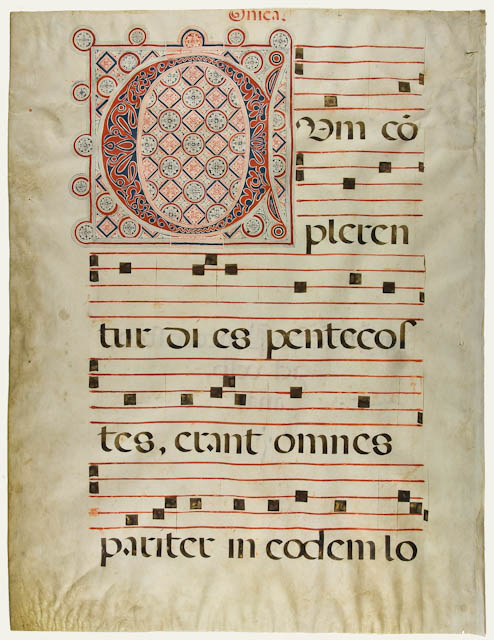 Onica.
Um cō
pleren
tur di es pentecos
tes, erant omnes
pariter in eodem lo